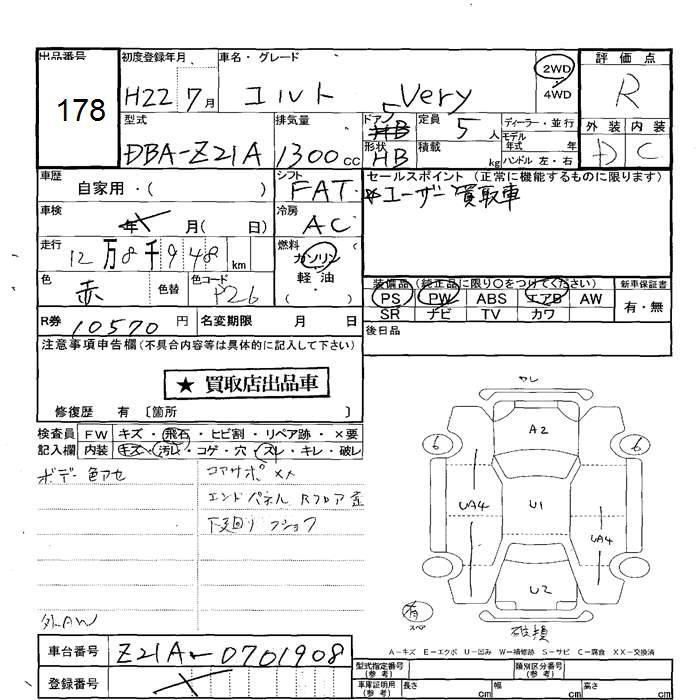 出品番号 初度登録年月 車名・グレード 2WD 評価点
178 H22 7月 コルト Very 4WD R
型式 排気量 ドア 5 定員 5人 ディーラー・並行 外装 内装
DBA-Z21A 1300cc 形状 HB 積載 kg モデル年式 年 D C
ハンドル 左・右
車歴 自家用・( ) シフト FAT セールスポイント (正常に機能するものに限ります)
車検 年 月( 日) 冷房 AC ※ユーザー買取車
走行 12万8千948km 燃料 ガソリン
軽油
色 赤 色替 色コード P26 装備品 (純正品に限り○をつけてください) 新車保証書
PS PW ABS エアB AW 有・無
SR ナビ TV カワ
R券 10570円 名変期限 月 日 後日品
注意事項申告欄(不具合内容等は具体的に記入して下さい)
★ 買取店出品車
修復歴 有 〔箇所 〕
検査員 FW キズ・飛石・ヒビ割・リペア跡・×要
記入欄 内装 キズ・汚レ・コゲ・穴・スレ・キレ・破レ
ボデー色アセ コアサポ ××
エンドパネル Rフロア歪
下廻り
外AW
ヤレ
6 A2 6
UA4 U1 UA4
U2
有 スペア 破損
A-キズ E-エクボ U-凹み W-補修跡 S-サビ C-腐食 XX-交換済
車台番号 Z21A-0701908 型式指定番号(参考) 類別区分番号(参考)
登録番号 車庫証明用(参考) 長さ cm 幅 cm 高さ cm